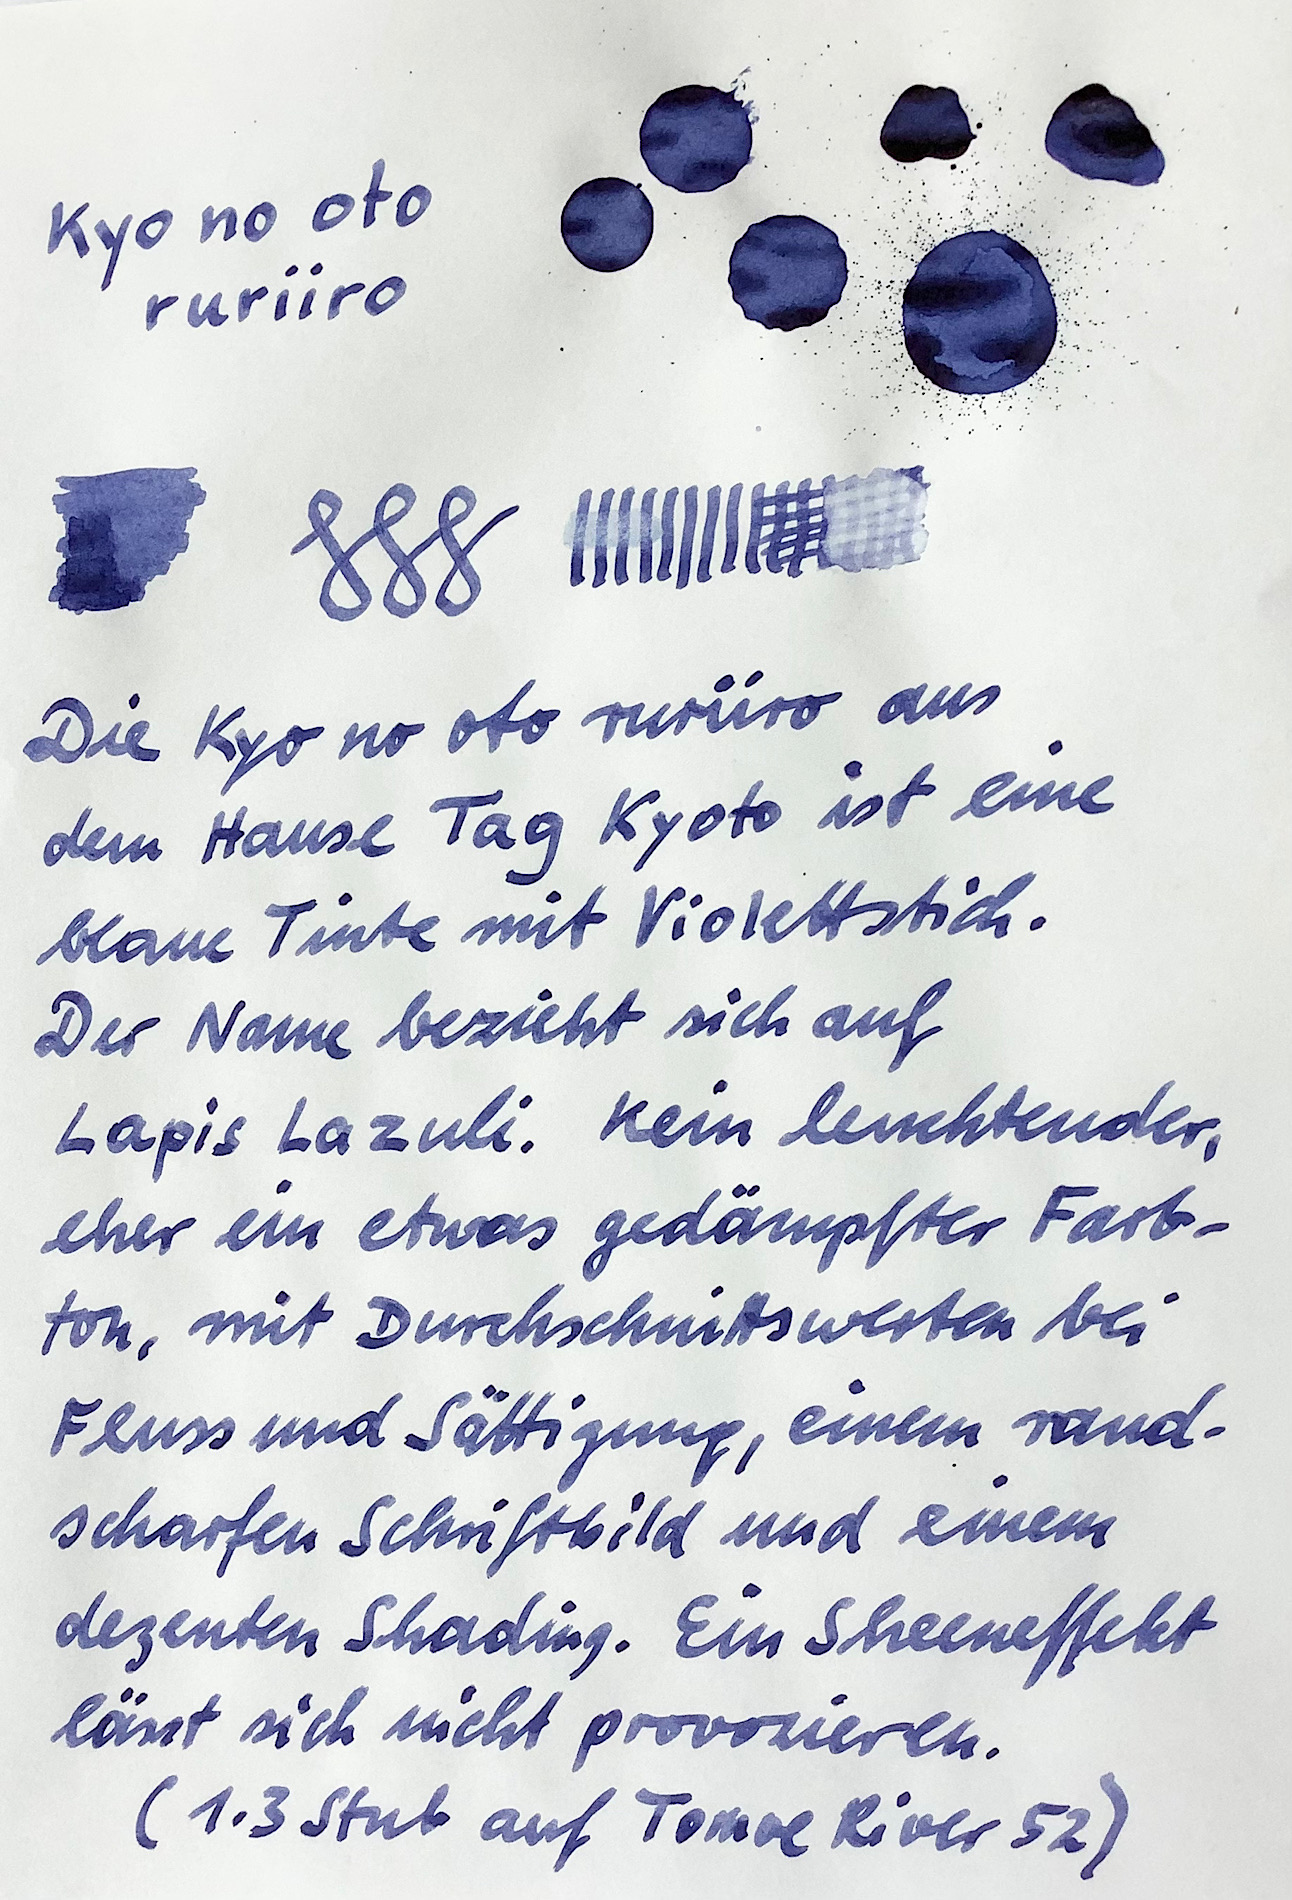 Kyo no oto
ruriiro
Die Kyo no oto ruriiro aus
dem Hause Tag Kyoto ist eine
blaue Tinte mit Violettstich.
Der Name bezieht sich auf
Lapis Lazuli. Kein leuchtender,
eher ein etwas gedämpfter Farb-
ton, mit Durchschnittswerten bei
Fluss und Sättigung, einem rand-
scharfen Schriftbild und einem
dezenten Shading. Ein Sheeneffekt
lässt sich nicht provozieren.
(1.3 Stub auf Tomoe River 52)